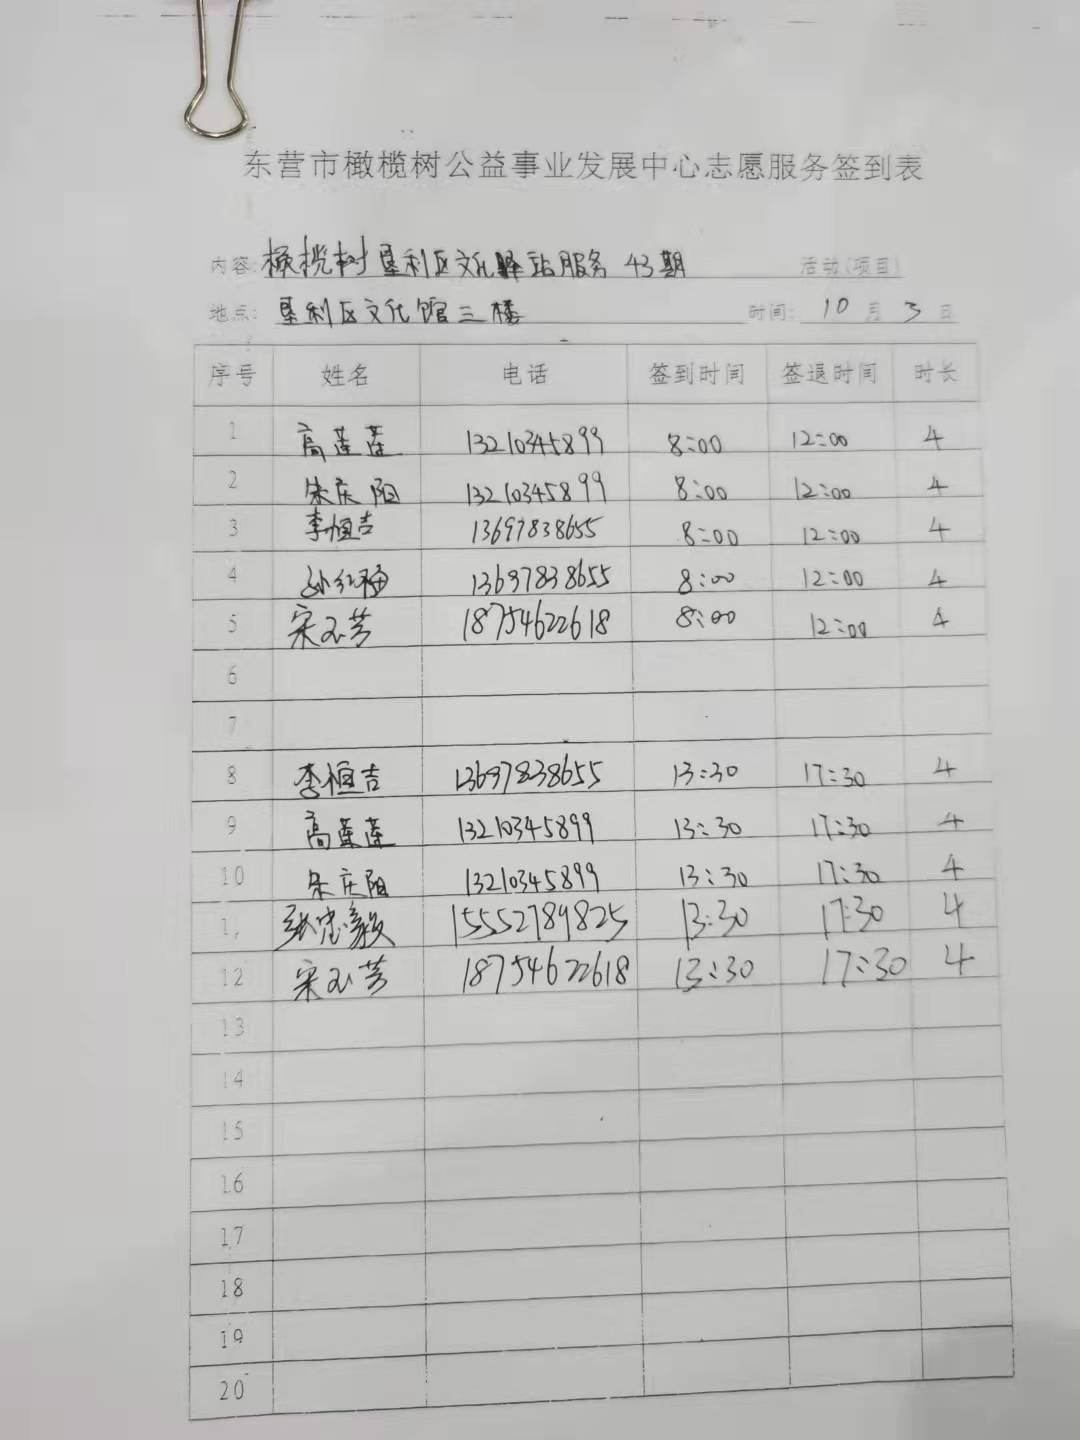 东营市橄榄树公益事业发展中心志愿服务签到表
内容: 橄榄树垦利区文化驿站服务 43期 活动(项目)
地点: 垦利区文化馆三楼 时间: 10 月 3 日
序号 姓名 电话 签到时间 签退时间 时长
1 高莲莲 13210345899 8:00 12:00 4
2 朱庆阳 13210345899 8:00 12:00 4
3 李恒吉 13697838655 8:00 12:00 4
4 孙红梅 13697838655 8:00 12:00 4
5 宋玉芳 18754622618 8:00 12:00 4
6
7
8 李恒吉 13697838655 13:30 17:30 4
9 高莲莲 13210345899 13:30 17:30 4
10 朱庆阳 13210345899 13:30 17:30 4
1, 张忠毅 15552789825 13:30 17:30 4
12 宋玉芳 18754622618 13:30 17:30 4
13
14
15
16
17
18
19
20